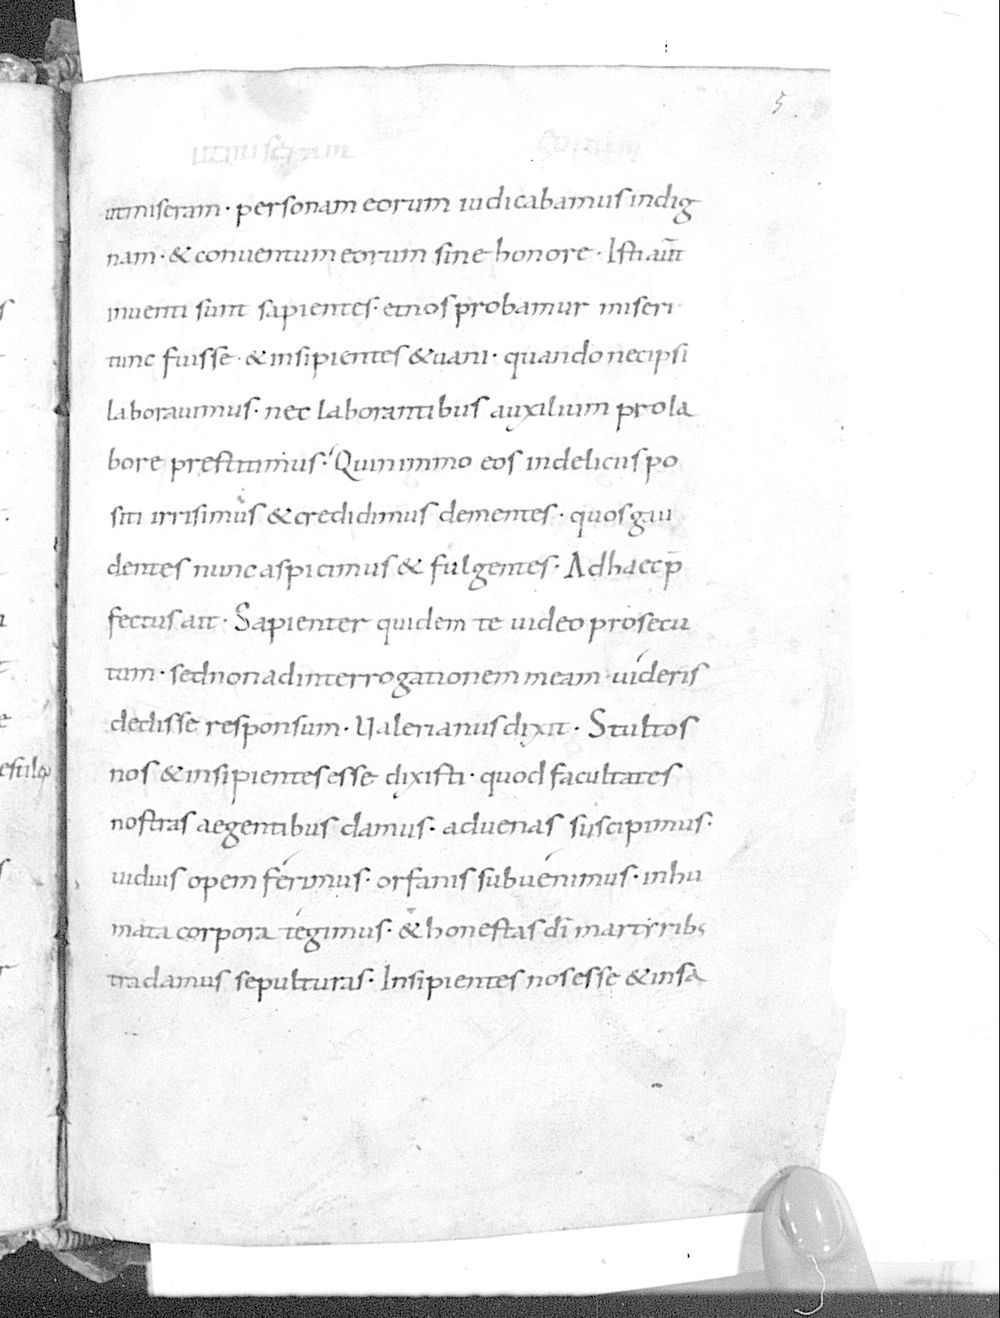 5
utmiseram · personam eorum iudicabamus indig
nam · & conuentum eorum sine honore · Isti aut̄
inuenti sunt sapientes · et nos probamur miseri
tunc fuisse · & insipientes & uani · quando nec ipsi
laborauimus · nec laborantibus auxilium pro la
bore prestitimus · Quin immo eos in deliciis po
siti irrisimus & credidimus dementes · quos gau
dentes nunc aspicimus & fulgentes · Ad haec p̄
fectus ait · Sapienter quidem te uideo prosecu
tum · sed non ad interrogationem meam uideris
dedisse responsum · Ualerianus dixit · Stultos
nos & insipientes esse dixisti · quod facultates
nostras aegentibus damus · aduenas suscipimus ·
uiduis opem ferimus · orfanis subuenimus · inhu
mata corpora tegimus · & honestas dī martyribs
tradamus sepulturas · Insipientes nos esse & insa